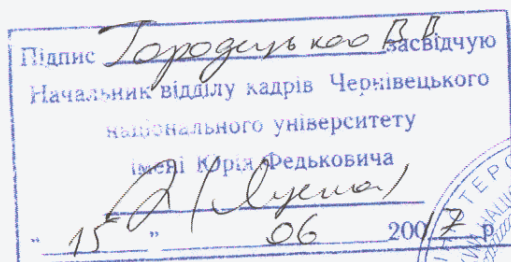 Підпис Городецького В.В. засвідчую
Начальник відділу кадрів Чернівецького
національного університету
імені Юрія Федьковича
" 15 " 06 2017 р.